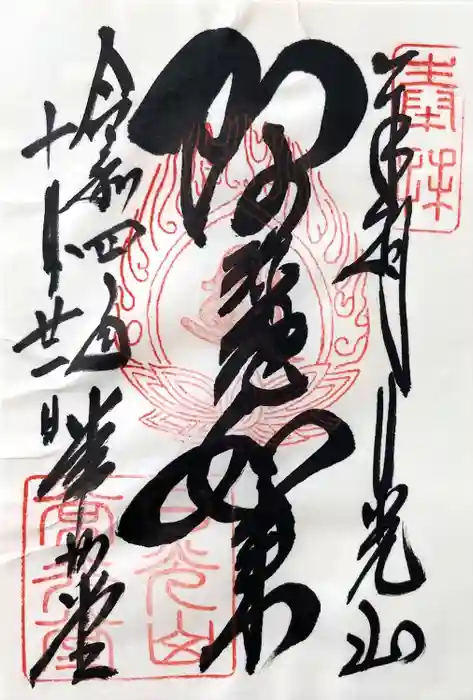 奉拝
奉拝 日光山
阿弥陀如来
令和四年
十月廿一日 常行堂
日光山
常行堂